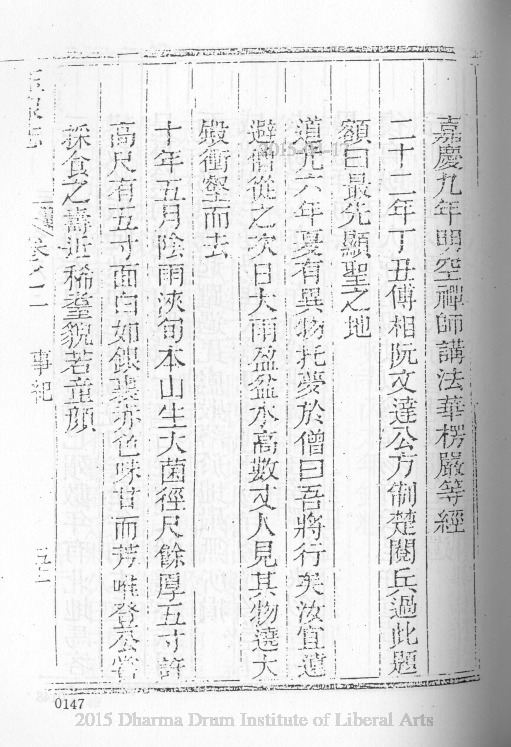 嘉慶九年明空禪師講法華楞嚴等經
二十二年丁丑傅相阮文達公方制楚閱兵過此題
額曰最先顯聖之地
道光六年夏有異物托夢於僧曰吾將行矣汝宜遠
避僧從之次日大雨盈盆水高數丈人見其物遶大
殿衝壑而去
十年五月陰雨浹旬本山生大菌徑尺餘厚五寸許
高尺有五寸面白如銀裏赤色味甘而芳唯登公嘗
採食之壽近稀耋貌若童顏
卷之一 事紀
0147
2015 Dharma Drum Institute of Liberal Arts